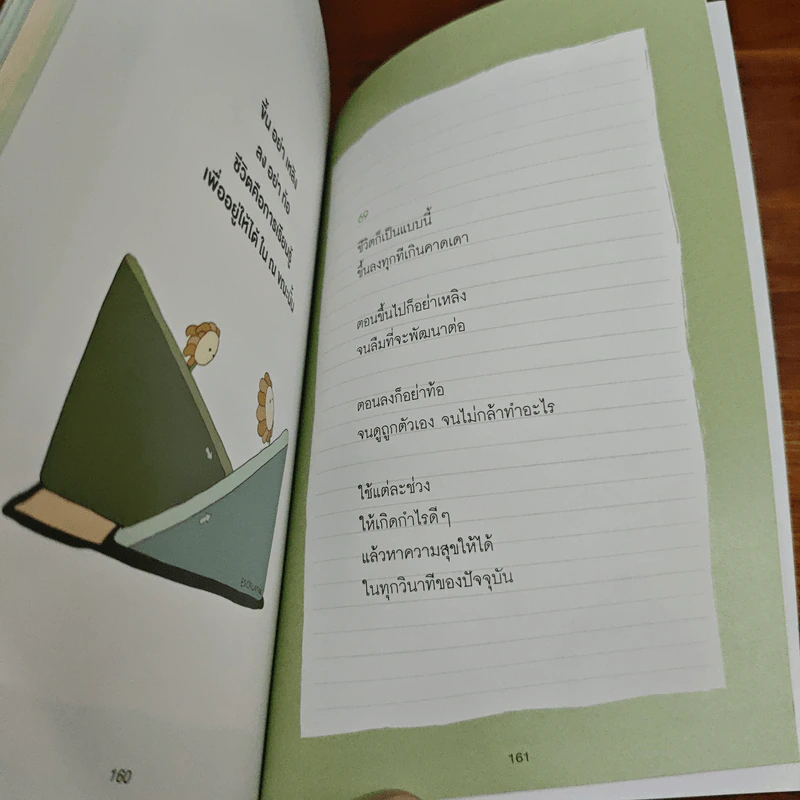 ขึ้น อย่า เหลิง
ลง อย่า ท้อ
ชีวิตคือการเรียนรู้
เพื่ออยู่ให้ได้ ใน ณ ขณะนั้น
160
69
ชีวิตก็เป็นแบบนี้
ขึ้นลงทุกทีเกินคาดเดา
ตอนขึ้นไปก็อย่าเหลิง
จนลืมที่จะพัฒนาต่อ
ตอนลงก็อย่าท้อ
จนดูถูกตัวเอง จนไม่กล้าทำอะไร
ใช้แต่ละช่วง
ให้เกิดกำไรดีๆ
แล้วหาความสุขให้ได้
ในทุกวินาทีของปัจจุบัน
161